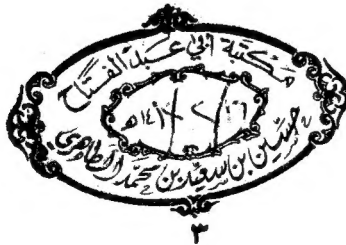 مكتبة أبي عبد الفتاح
٢٦/٢/١٤١هـ
حسين بن سعيد بن محمد الطاهري
٣